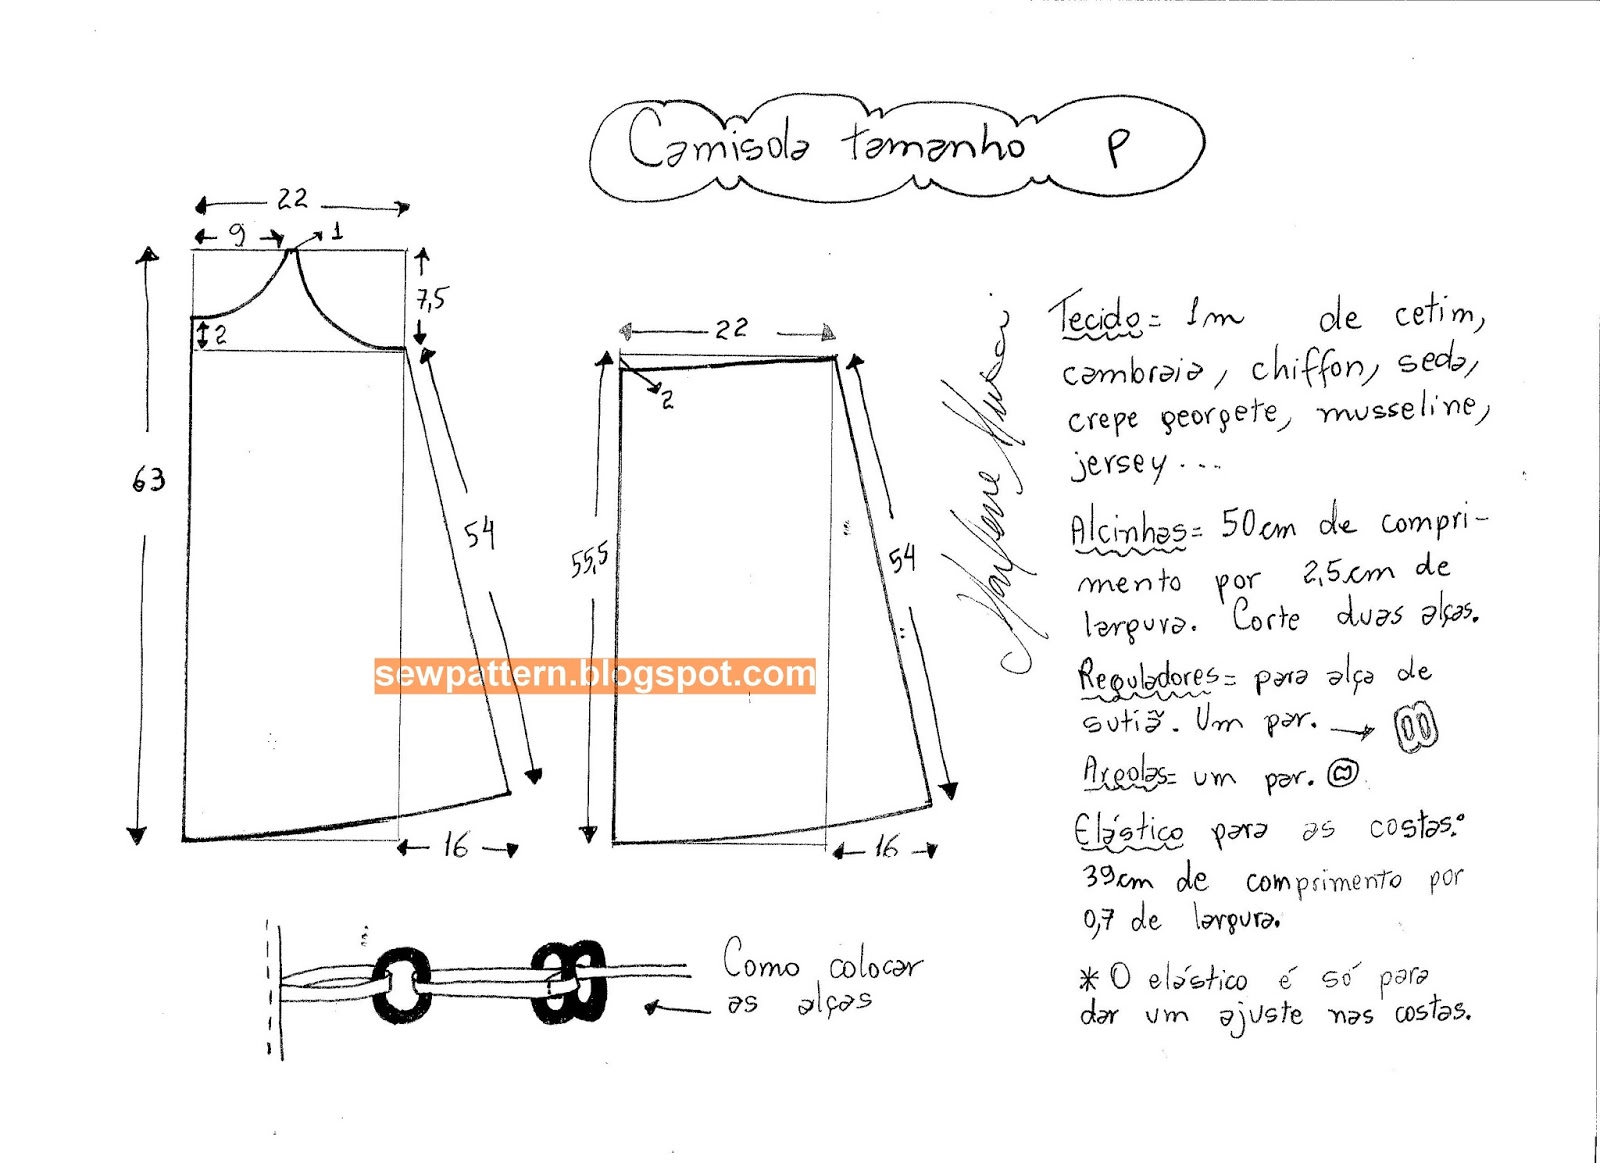 Camisola tamanho P
22
9
1
7,5
2
63
54
16
22
2
55,5
54
16
sewpattern.blogspot.com
Tecido = 1m de cetim,
cambraia, chiffon, seda,
crepe georgete, musseline,
jersey...
Alcinhas = 50cm de compri-
mento por 2,5cm de
largura. Corte duas alças.
Reguladores = para alça de
sutiã. Um par.
Argolas = um par.
Elástico para as costas:
39cm de comprimento por
0,7 de largura.
* O elástico é só para
dar um ajuste nas costas.
Como colocar
as alças